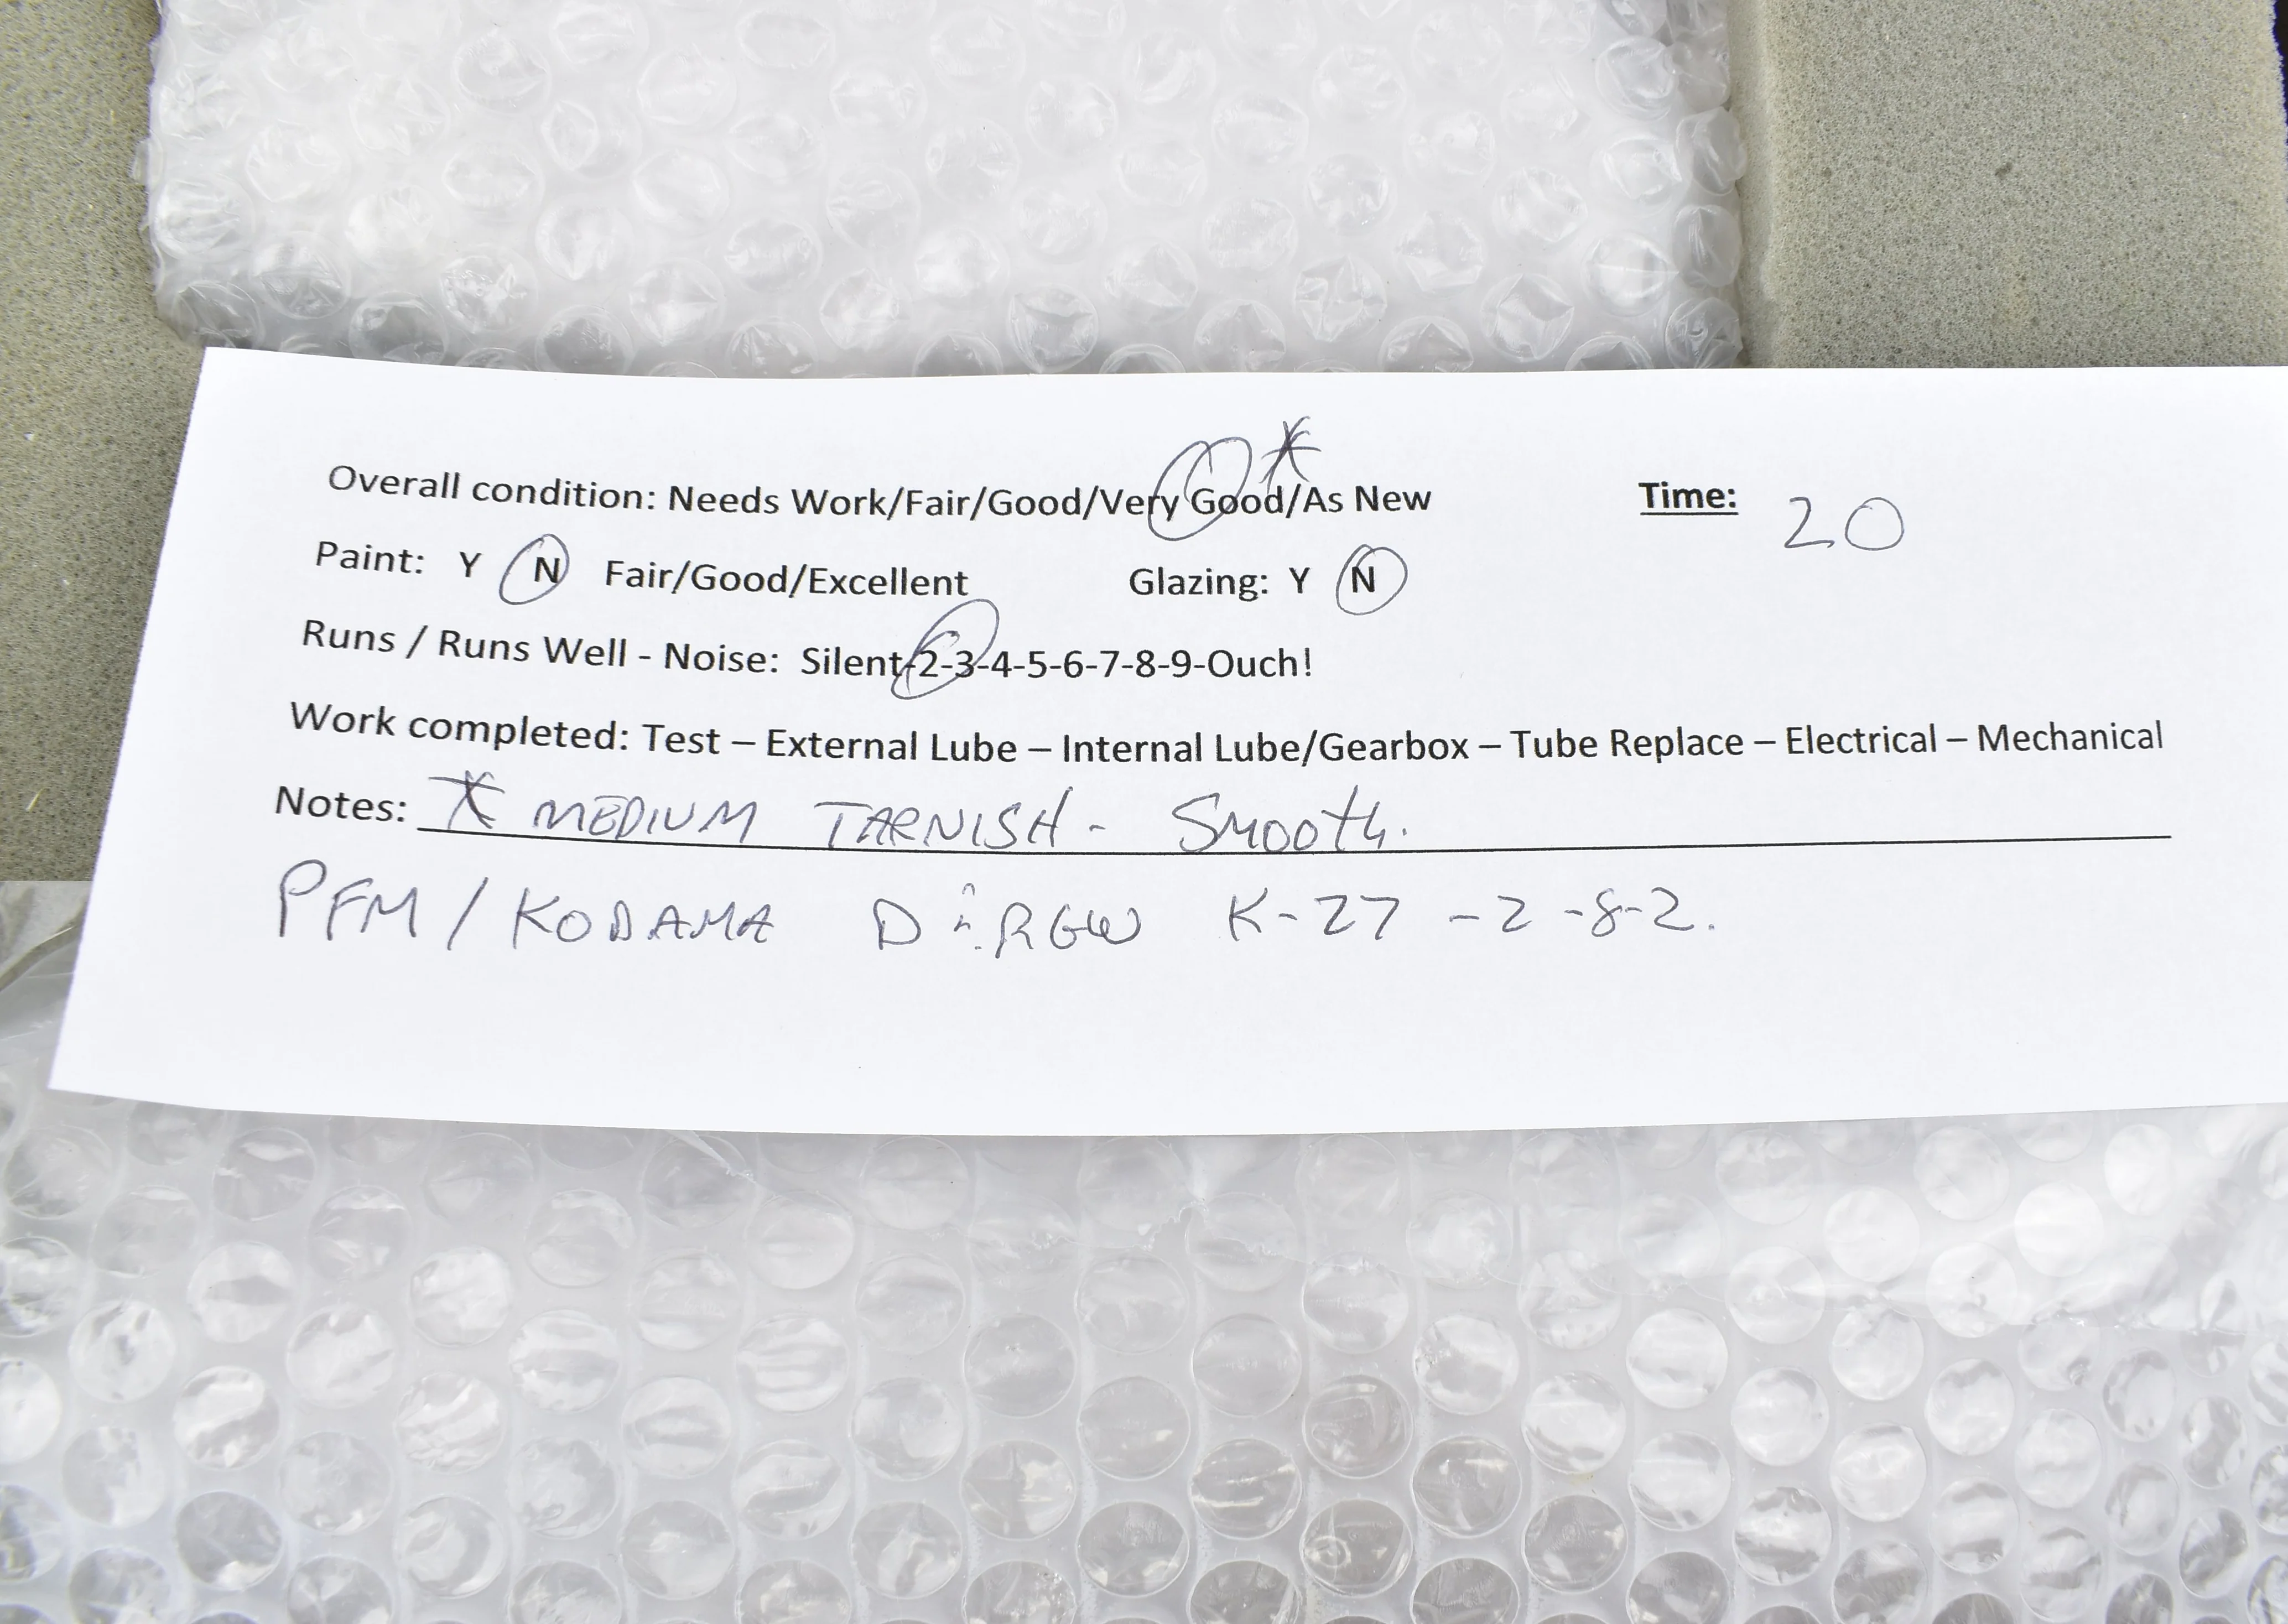 Overall condition: Needs Work/Fair/Good/Very Good/As New * Time: 20
Paint: Y N Fair/Good/Excellent Glazing: Y N
Runs / Runs Well - Noise: Silent-2-3-4-5-6-7-8-9-Ouch!
Work completed: Test – External Lube – Internal Lube/Gearbox – Tube Replace – Electrical – Mechanical
Notes: * MEDIUM TARNISH - SMOOTH.
PFM / KODAMA D & RGW K-27 - 2-8-2.